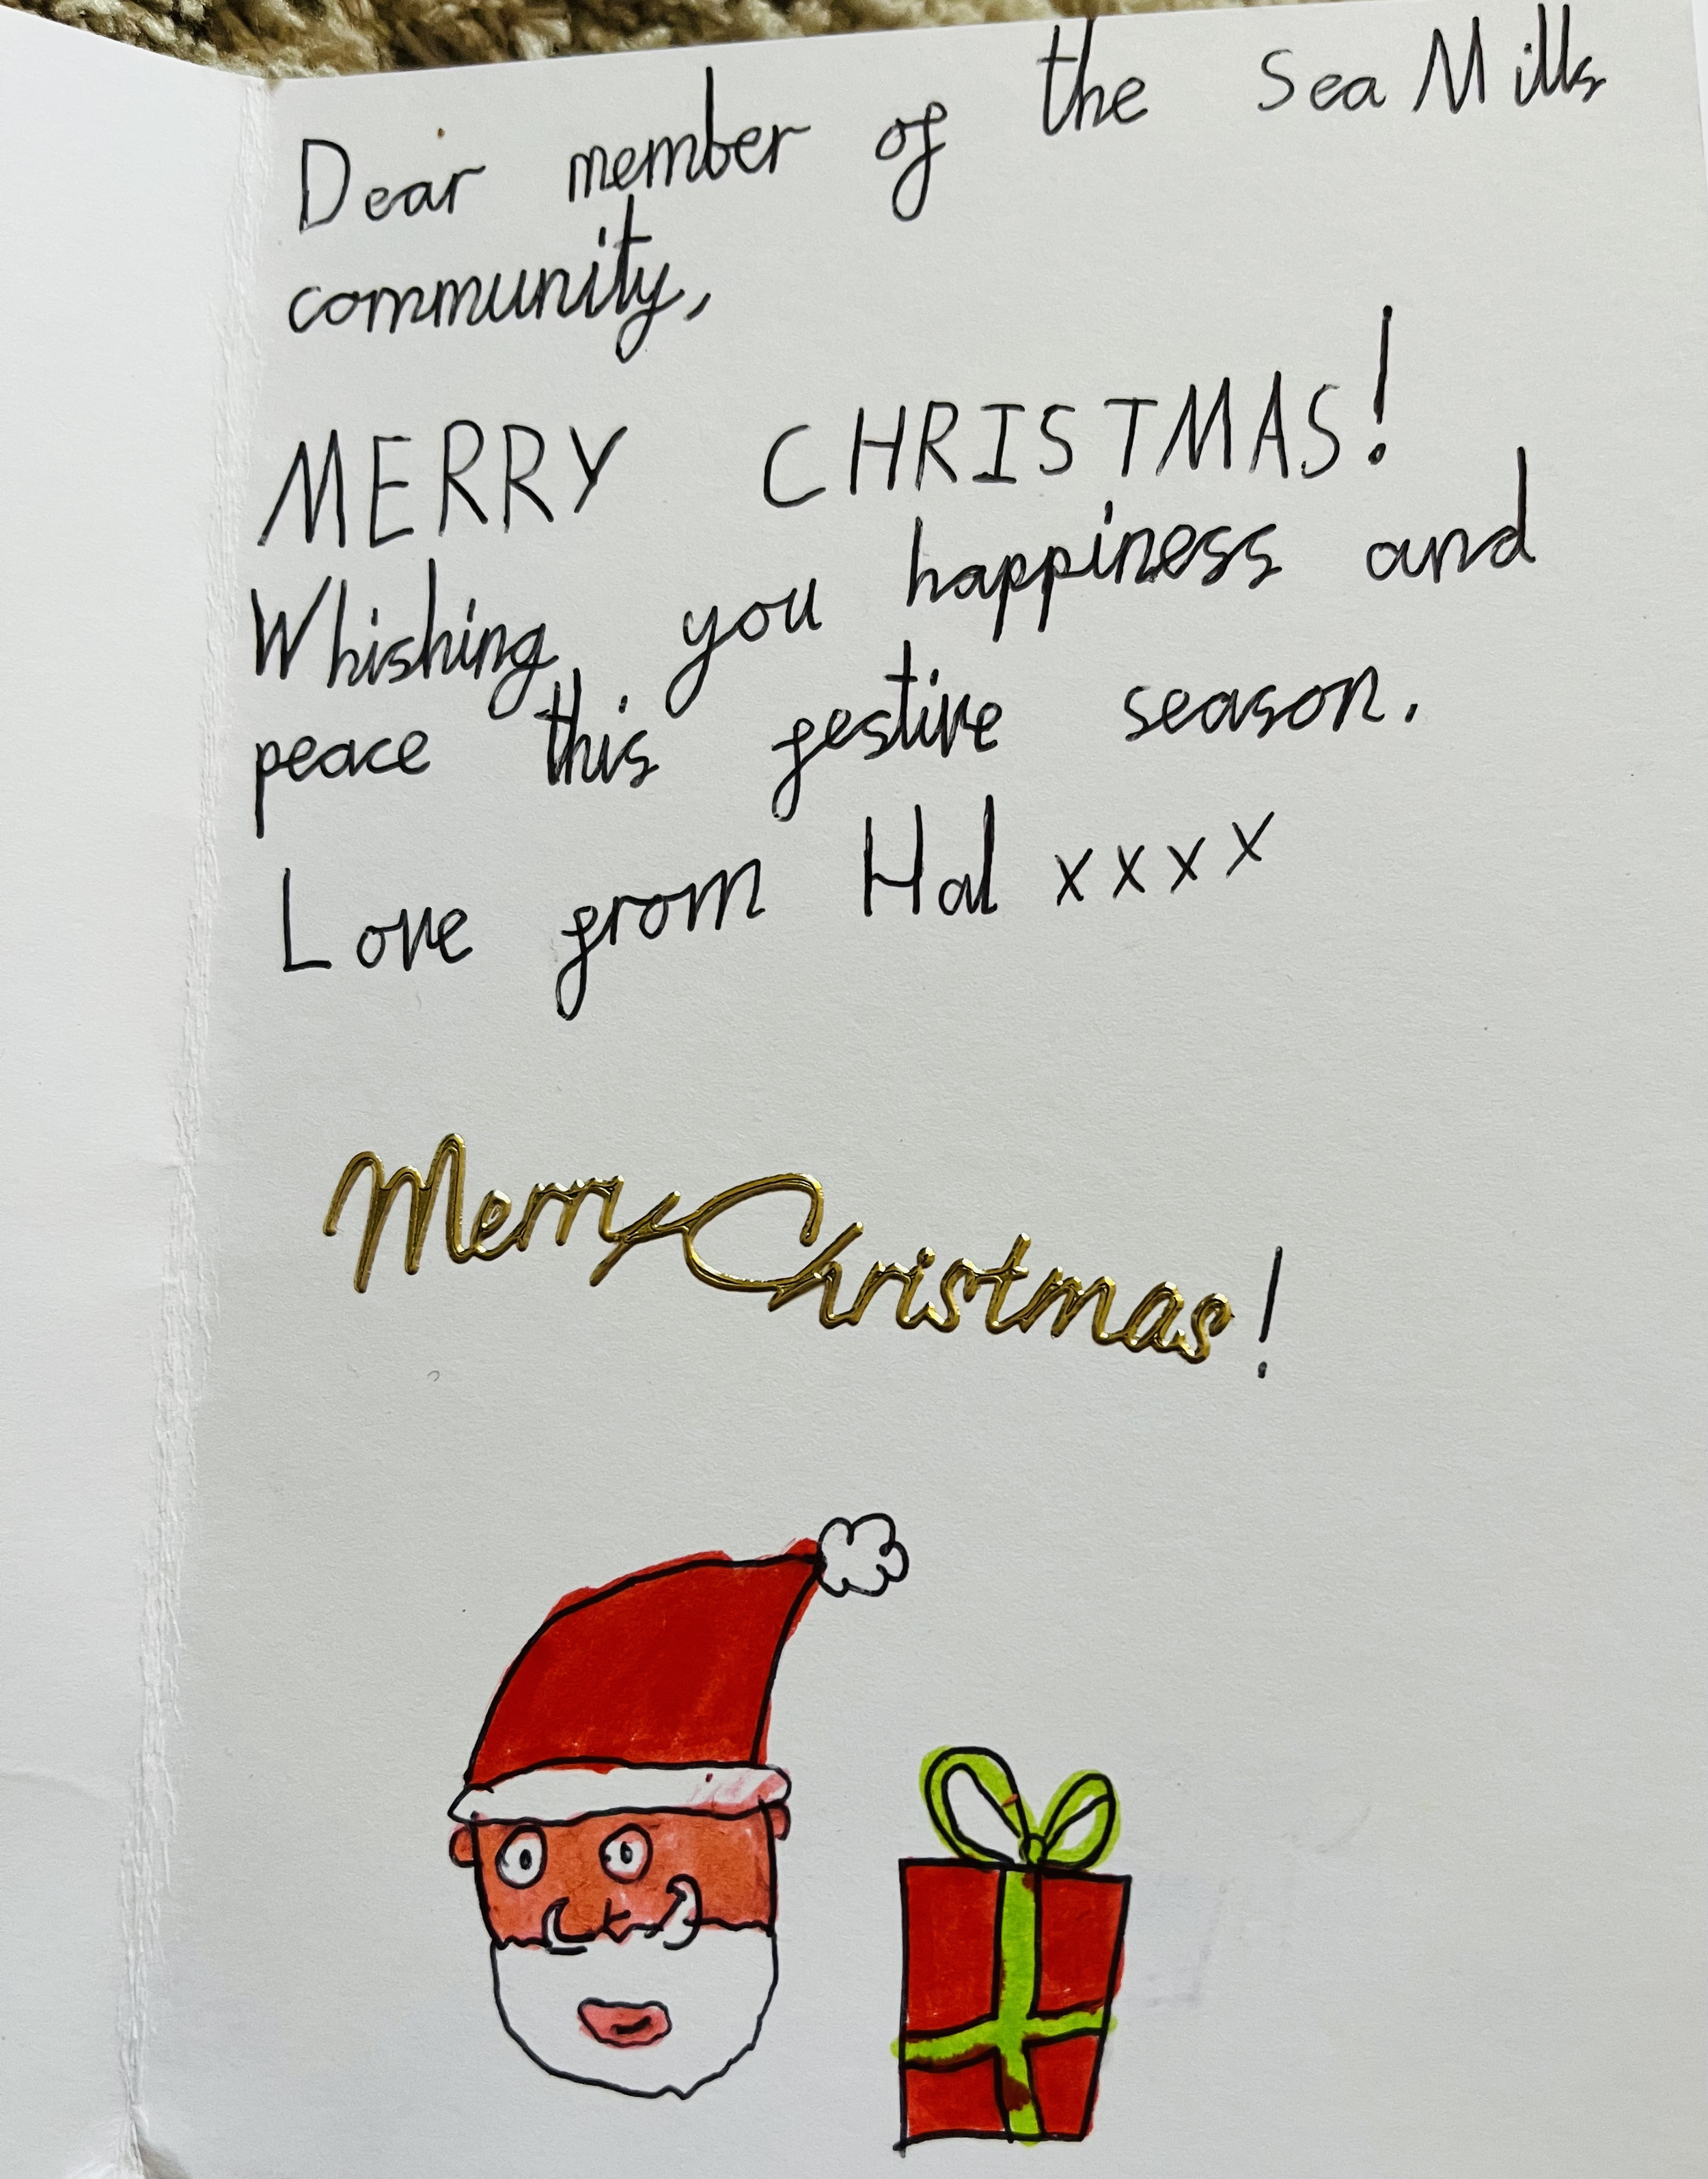 Dear member of the Sea Mills
community,
MERRY CHRISTMAS!
Whishing you happiness and
peace this festive season.
Love from Hal xxxx
Merry Christmas!